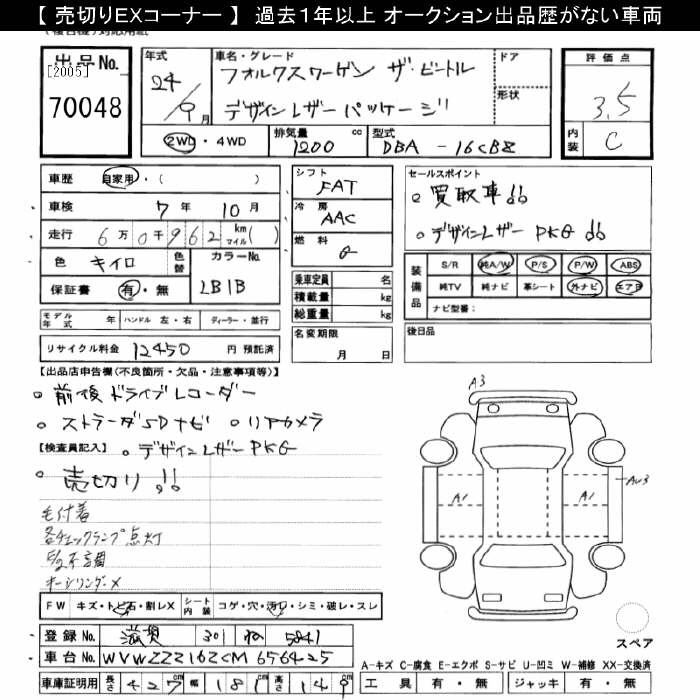 【 売切りEXコーナー 】 過去１年以上 オークション出品歴がない車両
出品No.
[2005]
70048
年式
24
9月
車名・グレード
フォルクスワーゲン ザ・ビートル
デザインレザーパッケージ
ドア
形状
評価点
3.5
内装 C
2WD・4WD
排気量 1200 cc
型式 DBA - 16CBZ
車歴 自家用・( )
車検 7年 10月
走行 6万0千962 km マイル( )
色 キイロ 色替
カラーNo. LB1B
保証書 有・無
シフト FAT
冷房 AAC
燃料 G
乗車定員 名
積載量 kg
総重量 kg
名変期限
月 日
セールスポイント
○ 買取車!!
○ デザインレザー PKG !!
装備品
S/R 純A/W P/S P/W ABS
純TV 純ナビ 革シート 外ナビ エアB
ナビ型番:
後日品
モデル年式 年 ハンドル 左・右 ディーラー・並行
リサイクル料金 12450 円 預託済
【出品店申告欄(不良箇所・欠品・注意事項等)】
○ 前後ドライブレコーダー
○ ストラーダSDナビ ○ リアカメラ
【検査員記入】 ○ デザインレザーPKG
○ 売切り!!
毛付着
各チェックランプ点灯
キーシリンダーX
A3
A1
A1
スペア
FW キズ・トビ石・割レX
シート内装 コゲ・穴・汚レ・シミ・破レ・スレ
登録No. 滋賀 301 ね 5841
車台No. WVWZZZ16ZCM656425
車庫証明用 長さ 427cm 幅 181cm 高さ 149cm
A-キズ C-腐食 E-エクボ S-サビ U-凹ミ W-補修 XX-交換済
工具 有・無 ジャッキ 有・無